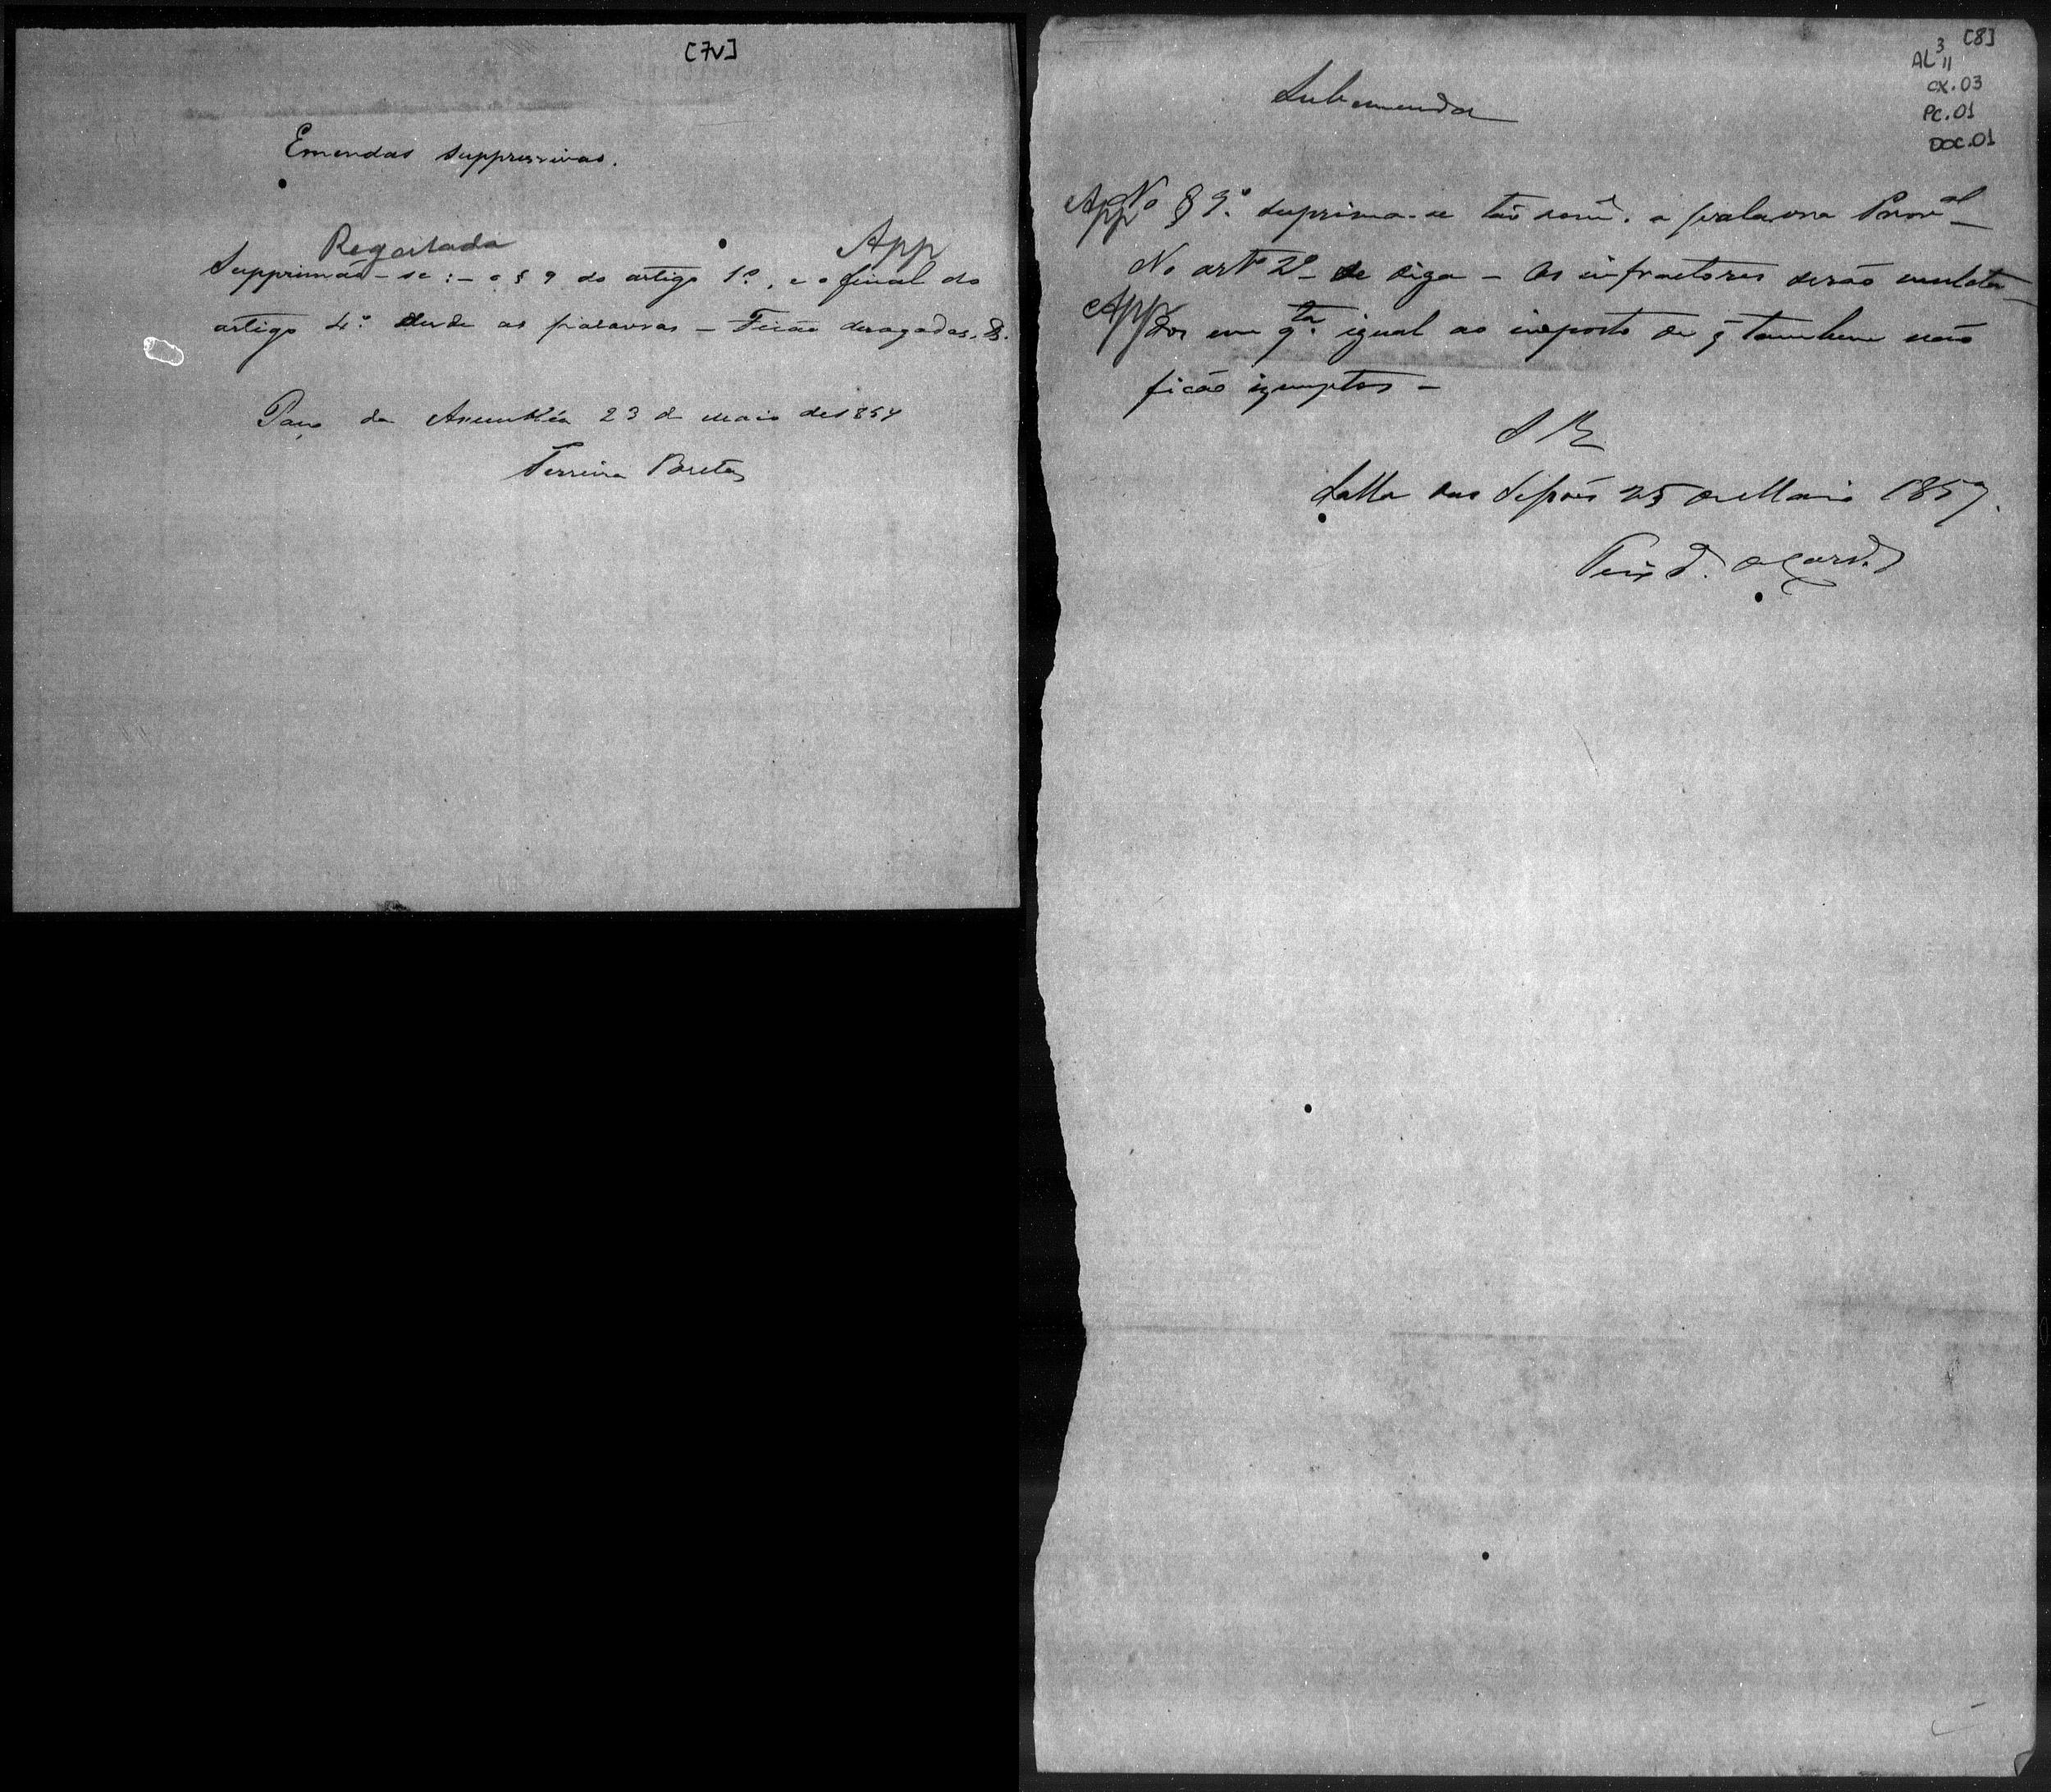 [7V]
Emendas suppressivas.
Regeitada App
Supprimão-se:- o § 9 do artigo 1º, e o final do
artigo 4º desde as palavras - Ficão derogadas, &.
Paço da Assembléa 23 de maio de 1857
Ferreira Bretas
[8]
AL 3 11
CX.03
PC.01
DOC.01
Subemenda
App No § 9º suprima-se tão som.e a palavra Prov.al
No artº 2º - se diga - Os infractores serão multa-
App dos em q.ta igual ao imposto de q̃ tambem não
ficão izemptos -
S R
Salla das Sessões 25 de Maio 1857.